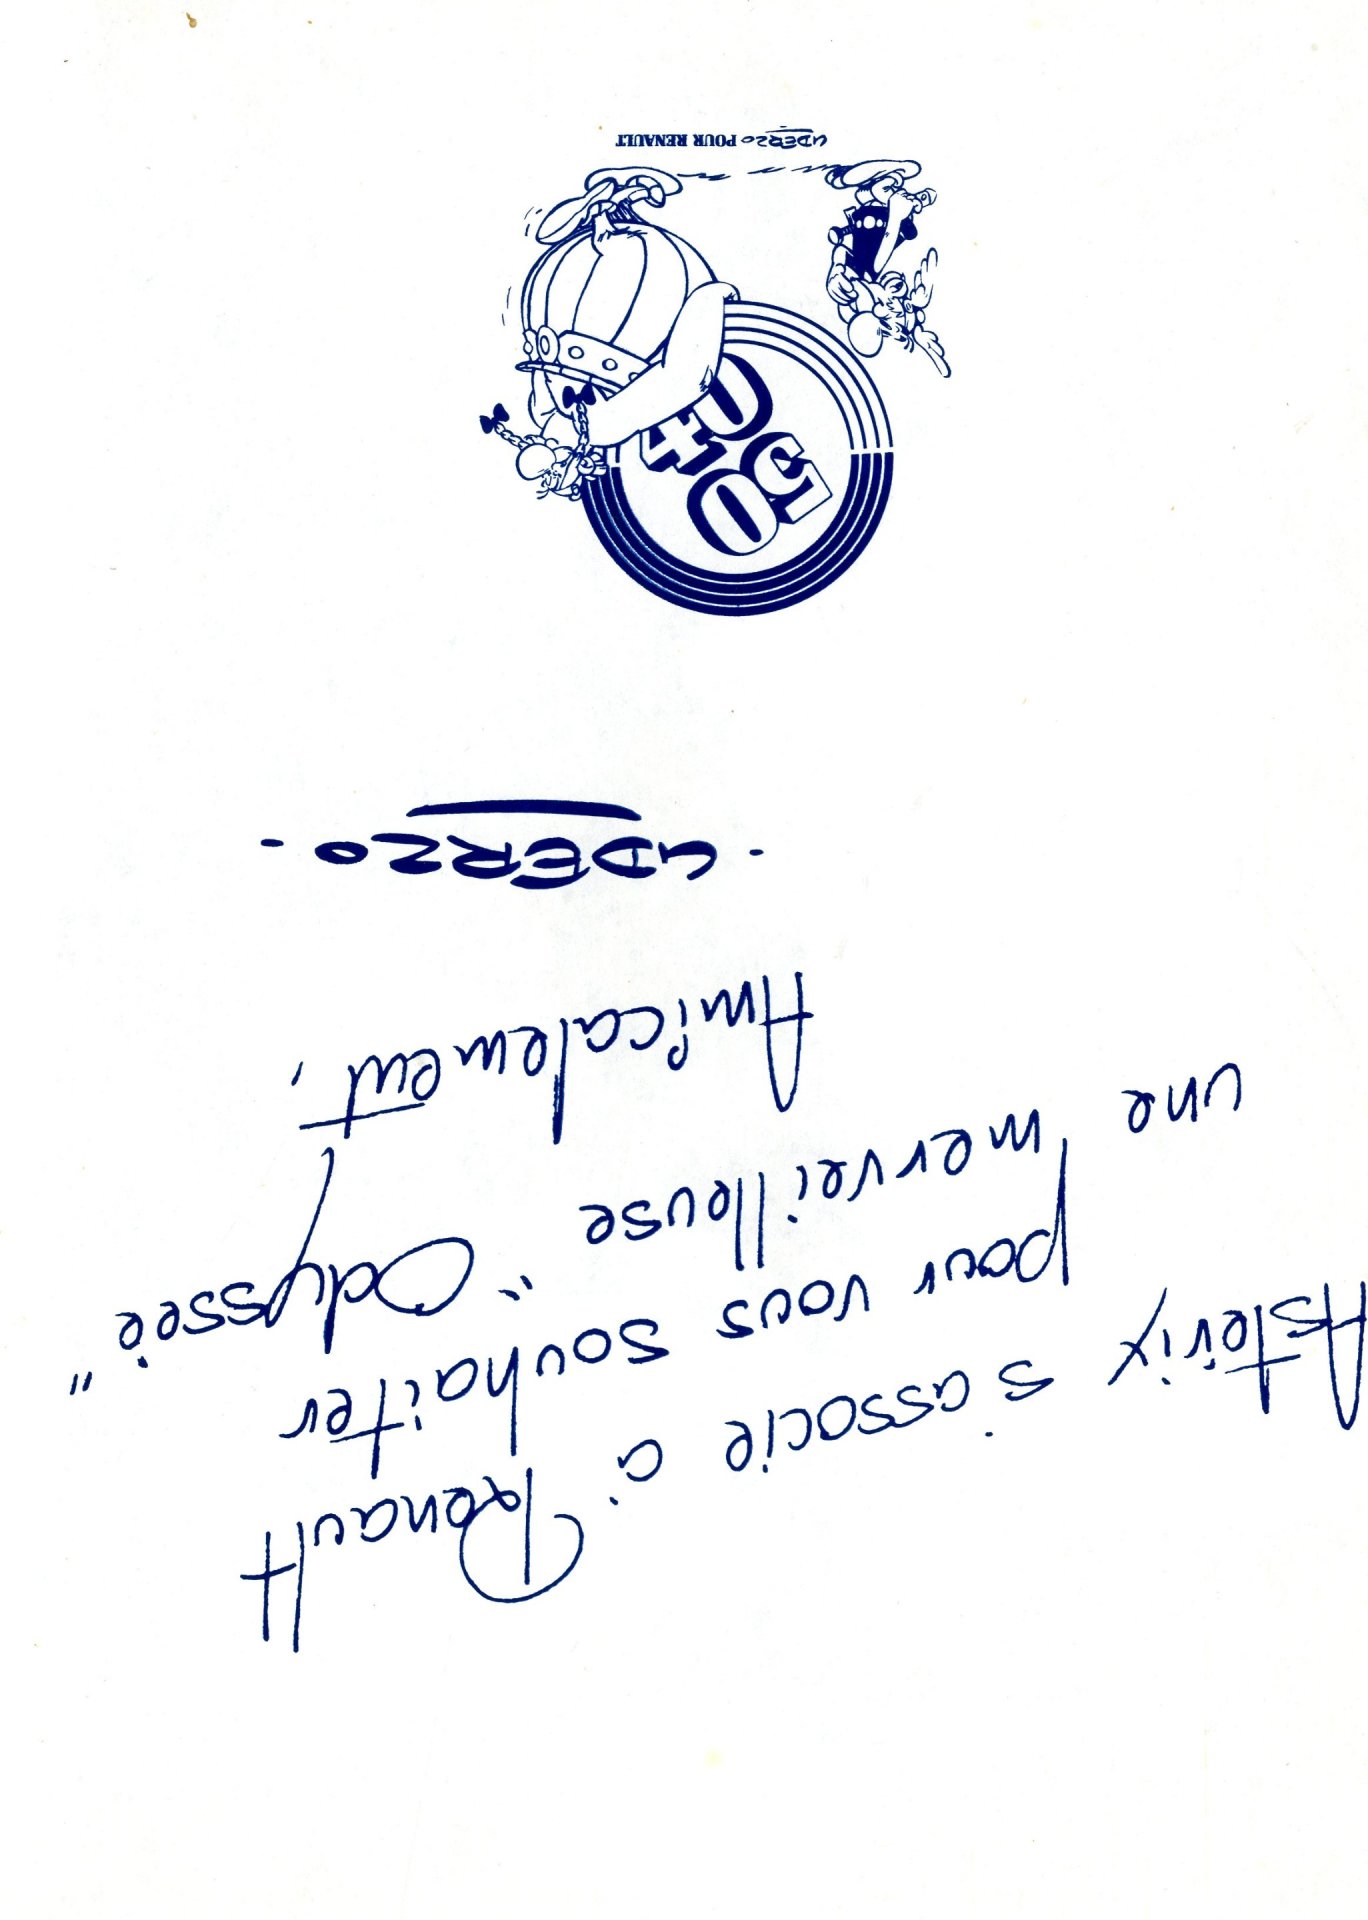 Astérix s'associe à Renault
pour vous souhaiter
une merveilleuse "Odyssée"
Amicalement,
- UDERZO -
50
40
UDERZO POUR RENAULT